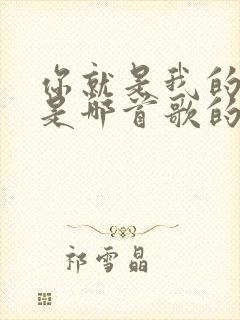 你就是我的
是那首歌的
祁雪晶